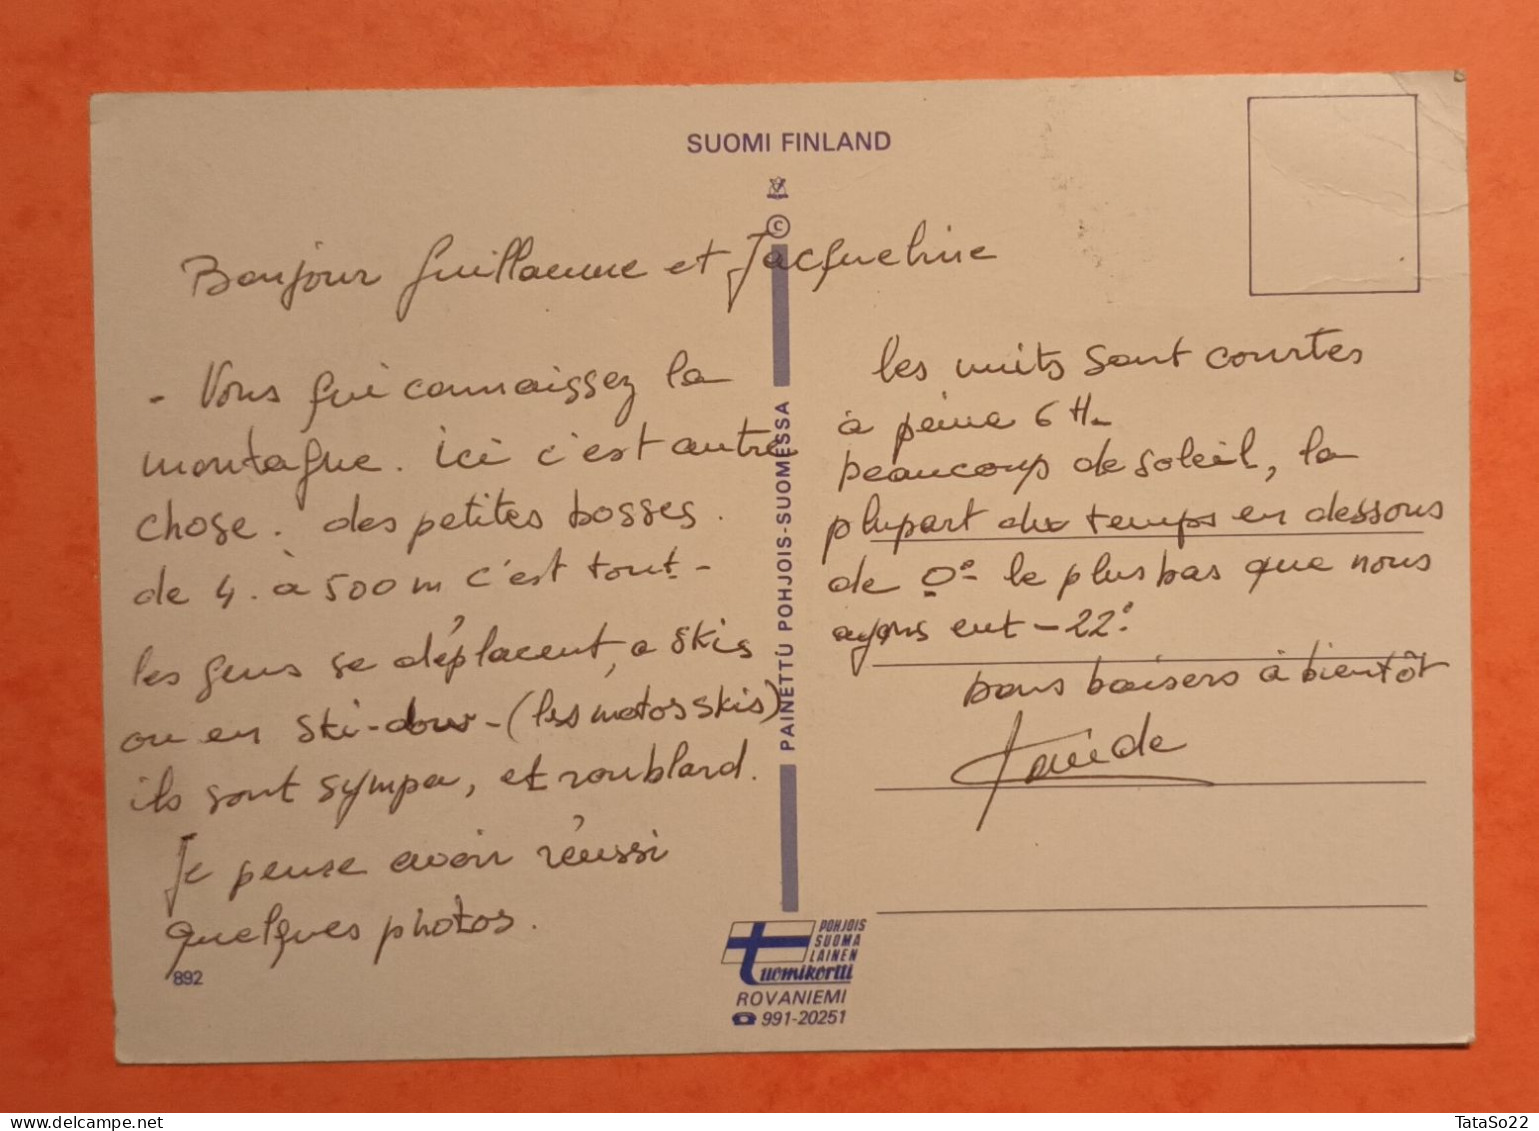 SUOMI FINLAND
©
Bonjour Guillaume et Jacqueline
- Vous qui connaissez la
montagne. ici c'est autre
chose. des petites bosses.
de 4. à 500 m c'est tout -
les gens se déplacent, a skis
ou en ski-dow - (les motos skis)
ils sont sympa, et roublard.
Je pense avoir réussi
quelques photos.
892
PAINETTU POHJOIS-SUOMESSA
les nuits sont courtes
à peine 6 H-
beaucoup de soleil, la
plupart du temps en dessous
de 0°- le plus bas que nous
ayons eut - 22°
bons baisers à bientôt
POHJOIS
SUOMA
LAINEN
tuomikortti
ROVANIEMI
☎ 991-20251
www.delcampe.net
TataSo22